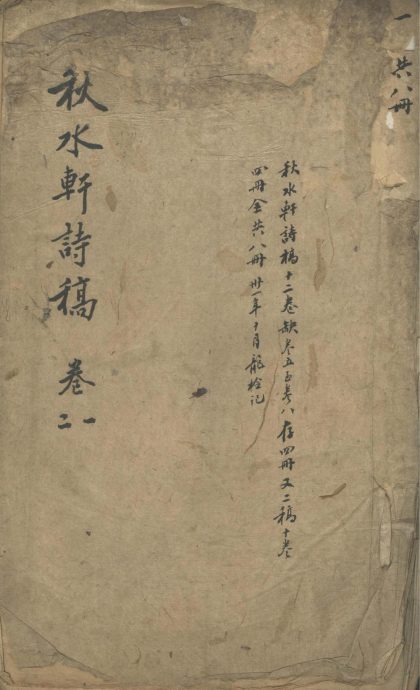 一 共八冊
秋水軒詩稿十二卷缺卷五至卷八存四冊又二稿十卷
四冊全共八冊卅一年十月龍栓記
秋水軒詩稿 卷一二